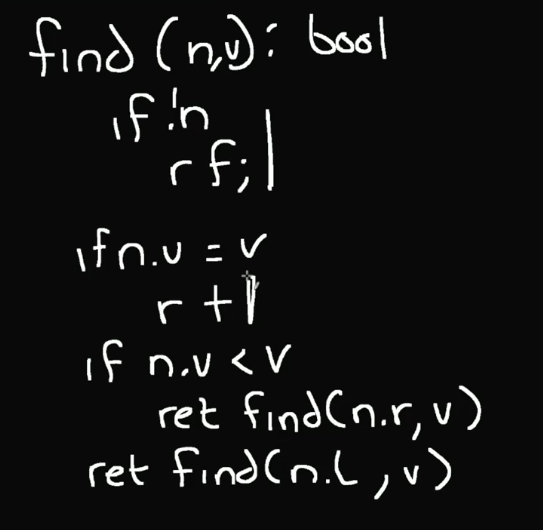 find (n,v): bool
if !n
r f;
if n.v = v
r t
if n.v < v
ret find(n.r, v)
ret find(n.L, v)